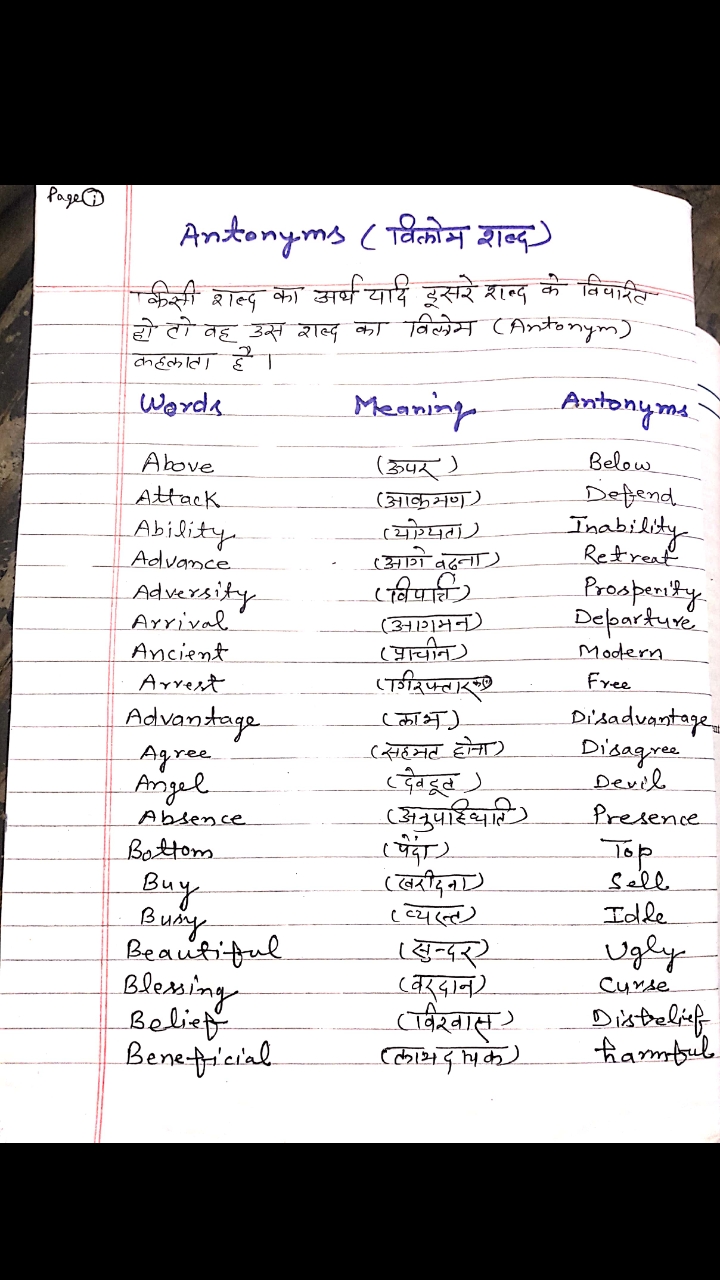 Page ①
Antonyms (विलोम शब्द)
किसी शब्द का अर्थ यदि दूसरे शब्द के विपरित
हो तो वह उस शब्द का विलोम (Antonym)
कहलाता है।
Words Meaning Antonyms
Above (ऊपर) Below
Attack (आक्रमण) Defend
Ability (योग्यता) Inability
Advance (आगे बढ़ना) Retreat
Adversity (विपत्ति) Prosperity
Arrival (आगमन) Departure
Ancient (प्राचीन) Modern
Arrest (गिरफ्तार) Free
Advantage (लाभ) Disadvantage
Agree (सहमत होना) Disagree
Angel (देवदूत) Devil
Absence (अनुपस्थिति) Presence
Bottom (पेंदा) Top
Buy (खरीदना) Sell
Busy (व्यस्त) Idle
Beautiful (सुन्दर) Ugly
Blessing (वरदान) Curse
Belief (विश्वास) Disbelief
Beneficial (लाभदायक) harmful